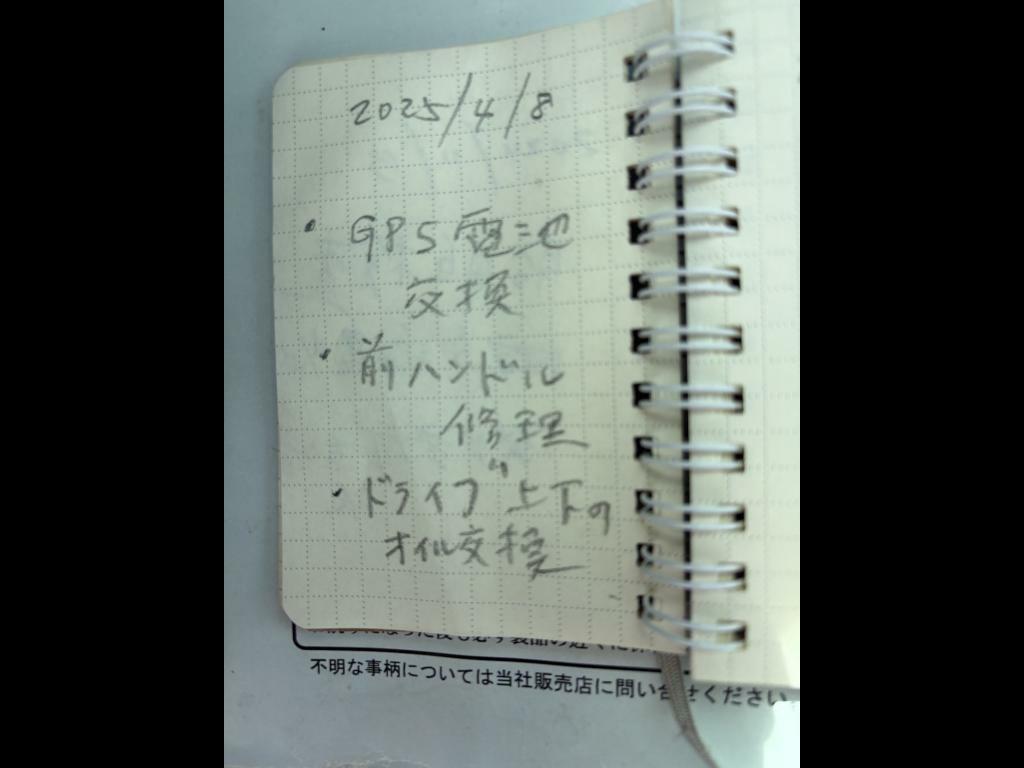 2025/4/8
・GPS電池
交換
・前ハンドル
修理
・ドライブ上下の
オイル交換
不明な事柄については当社販売店に問い合せください